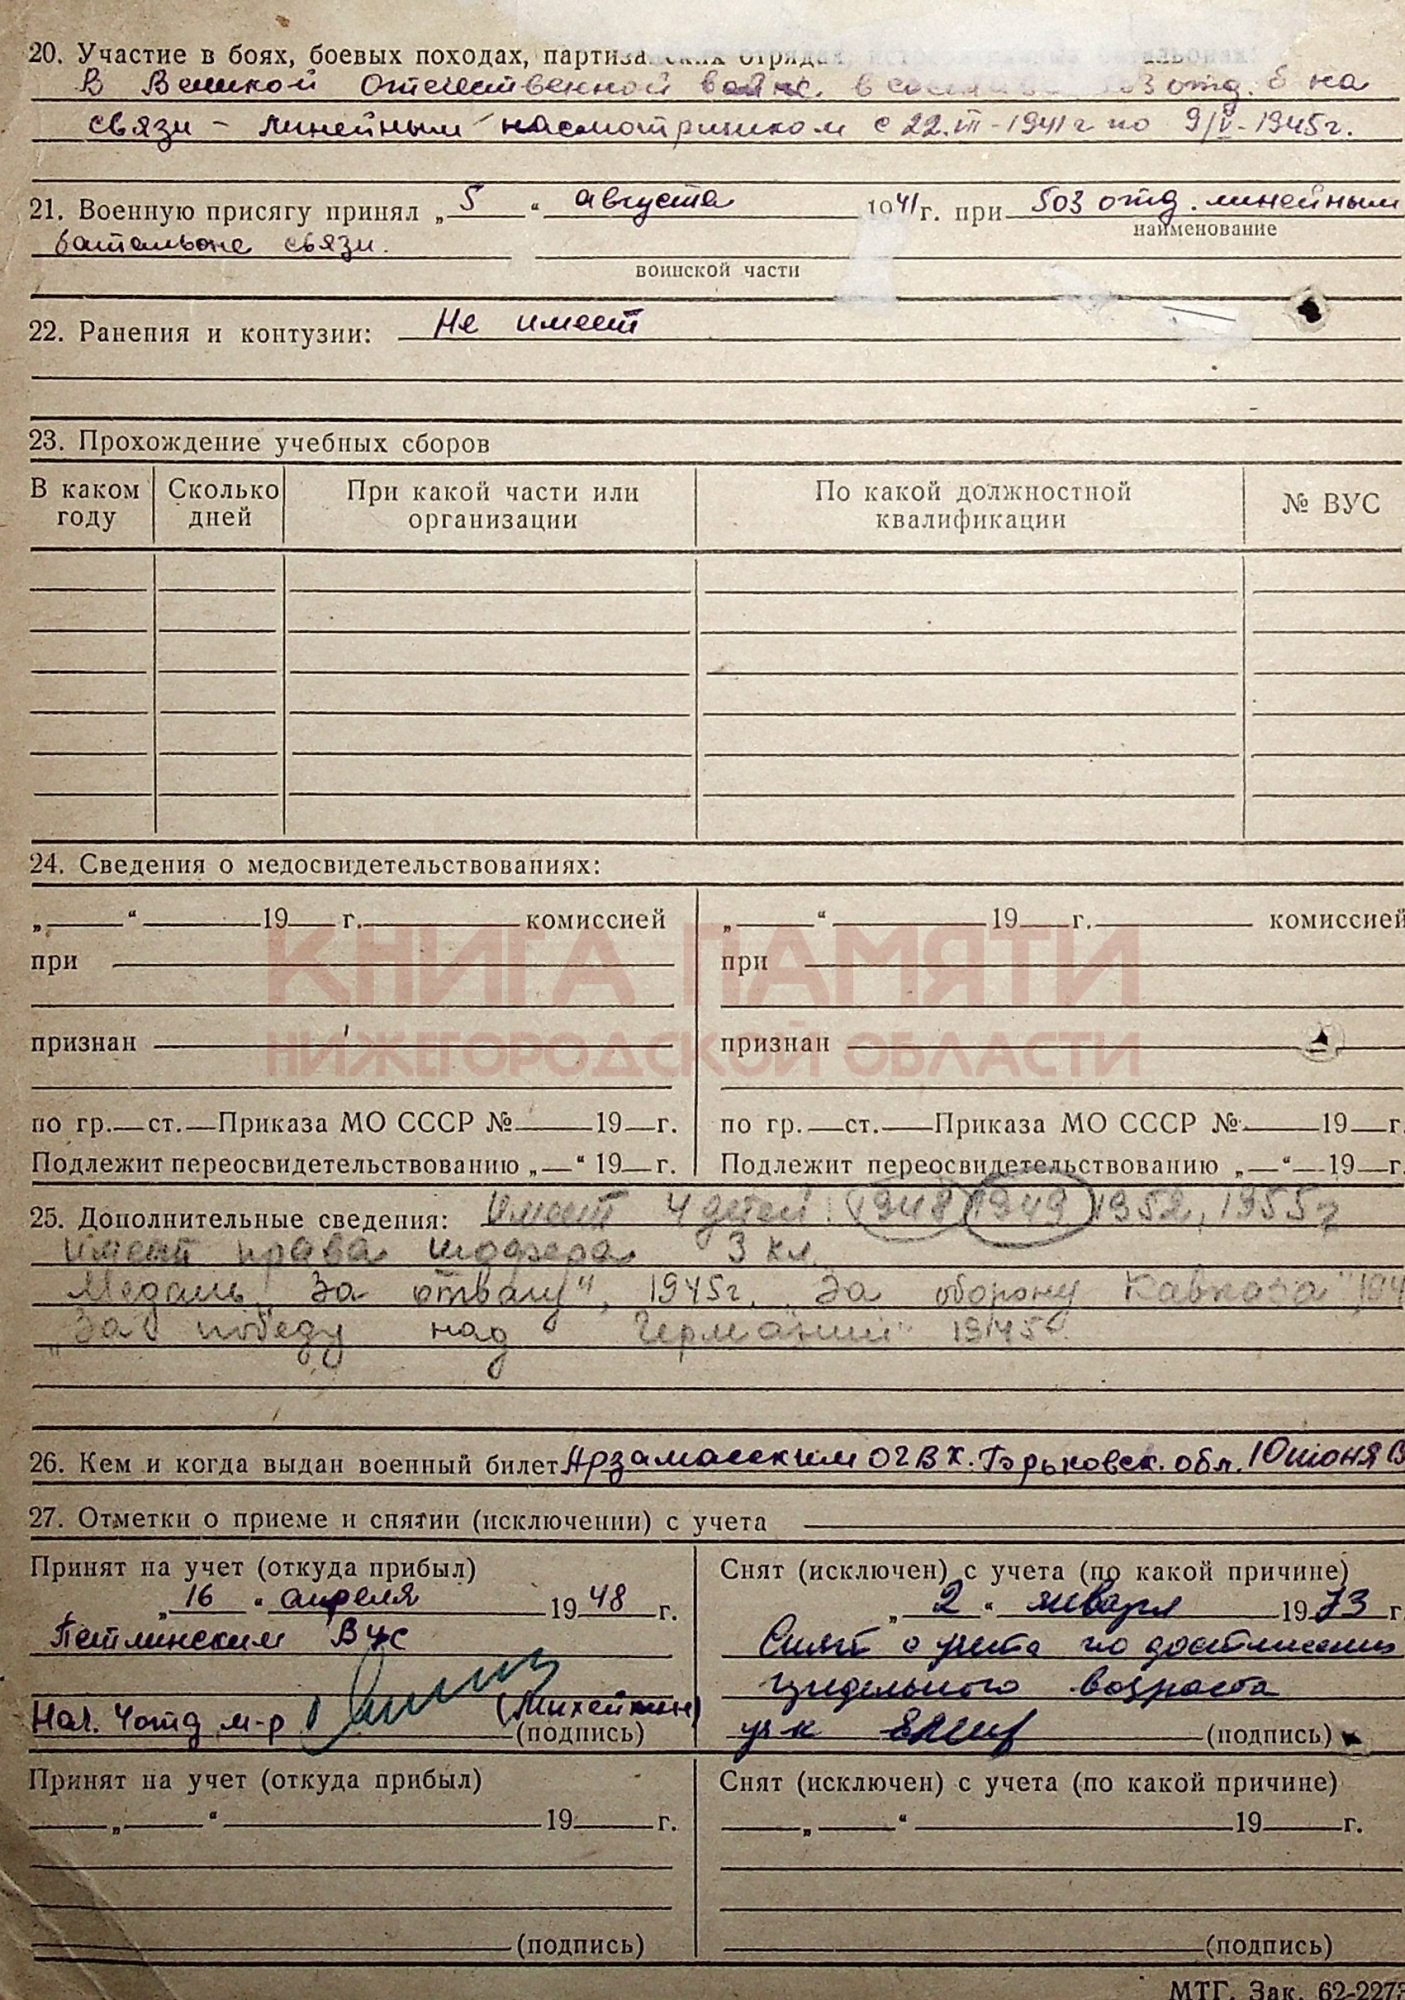 20. Участие в боях, боевых походах, партизанских отрядах, истребительных батальонах:
В Великой Отечественной войне в составе 503 отд. б на
связи – линейным надсмотрщиком с 22.VII-1941г по 9/V-1945г.
21. Военную присягу принял „5“ августа 1941г. при 503 отд. линейным
наименование
батальоне связи.
воинской части
22. Ранения и контузии: Не имеет
23. Прохождение учебных сборов
В каком году Сколько дней При какой части или организации По какой должностной квалификации № ВУС
24. Сведения о медосвидетельствованиях:
„ “ 19 г. комиссией „ “ 19 г. комиссией
при при
КНИГА ПАМЯТИ
признан признан
НИЖЕГОРОДСКОЙ ОБЛАСТИ
по гр. ст. Приказа МО СССР № 19 г. по гр. ст. Приказа МО СССР № 19 г.
Подлежит переосвидетельствованию „ “ 19 г. Подлежит переосвидетельствованию „ “ 19 г.
25. Дополнительные сведения: Имеет 4 детей: 1948 1949 1952, 1955г
имеет права шофера 3 кл.
Медаль „За отвагу“, 1945г. „За оборону Кавказа“ 194
„За победу над Германией“ 1945г.
26. Кем и когда выдан военный билет Арзамасским ОГВК. Горьковск. обл. 10 июня
27. Отметки о приеме и снятии (исключении) с учета
Принят на учет (откуда прибыл) Снят (исключен) с учета (по какой причине)
„16“ апреля 1948 г. „2“ января 1973 г.
ВУС Снят с учета по достижении
предельного возраста
Нач. 4 отд м-р (Михейкин)
(подпись) (подпись)
Принят на учет (откуда прибыл) Снят (исключен) с учета (по какой причине)
„ “ 19 г. „ “ 19 г.
(подпись) (подпись)
МТГ. Зак. 62-2273